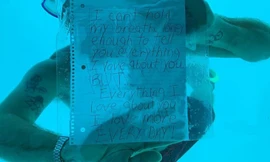 I can't hold
my breath long
enough to tell
you everything
I love about you
BUT...
Everything I
love about you
I love more
EVERYDAY!